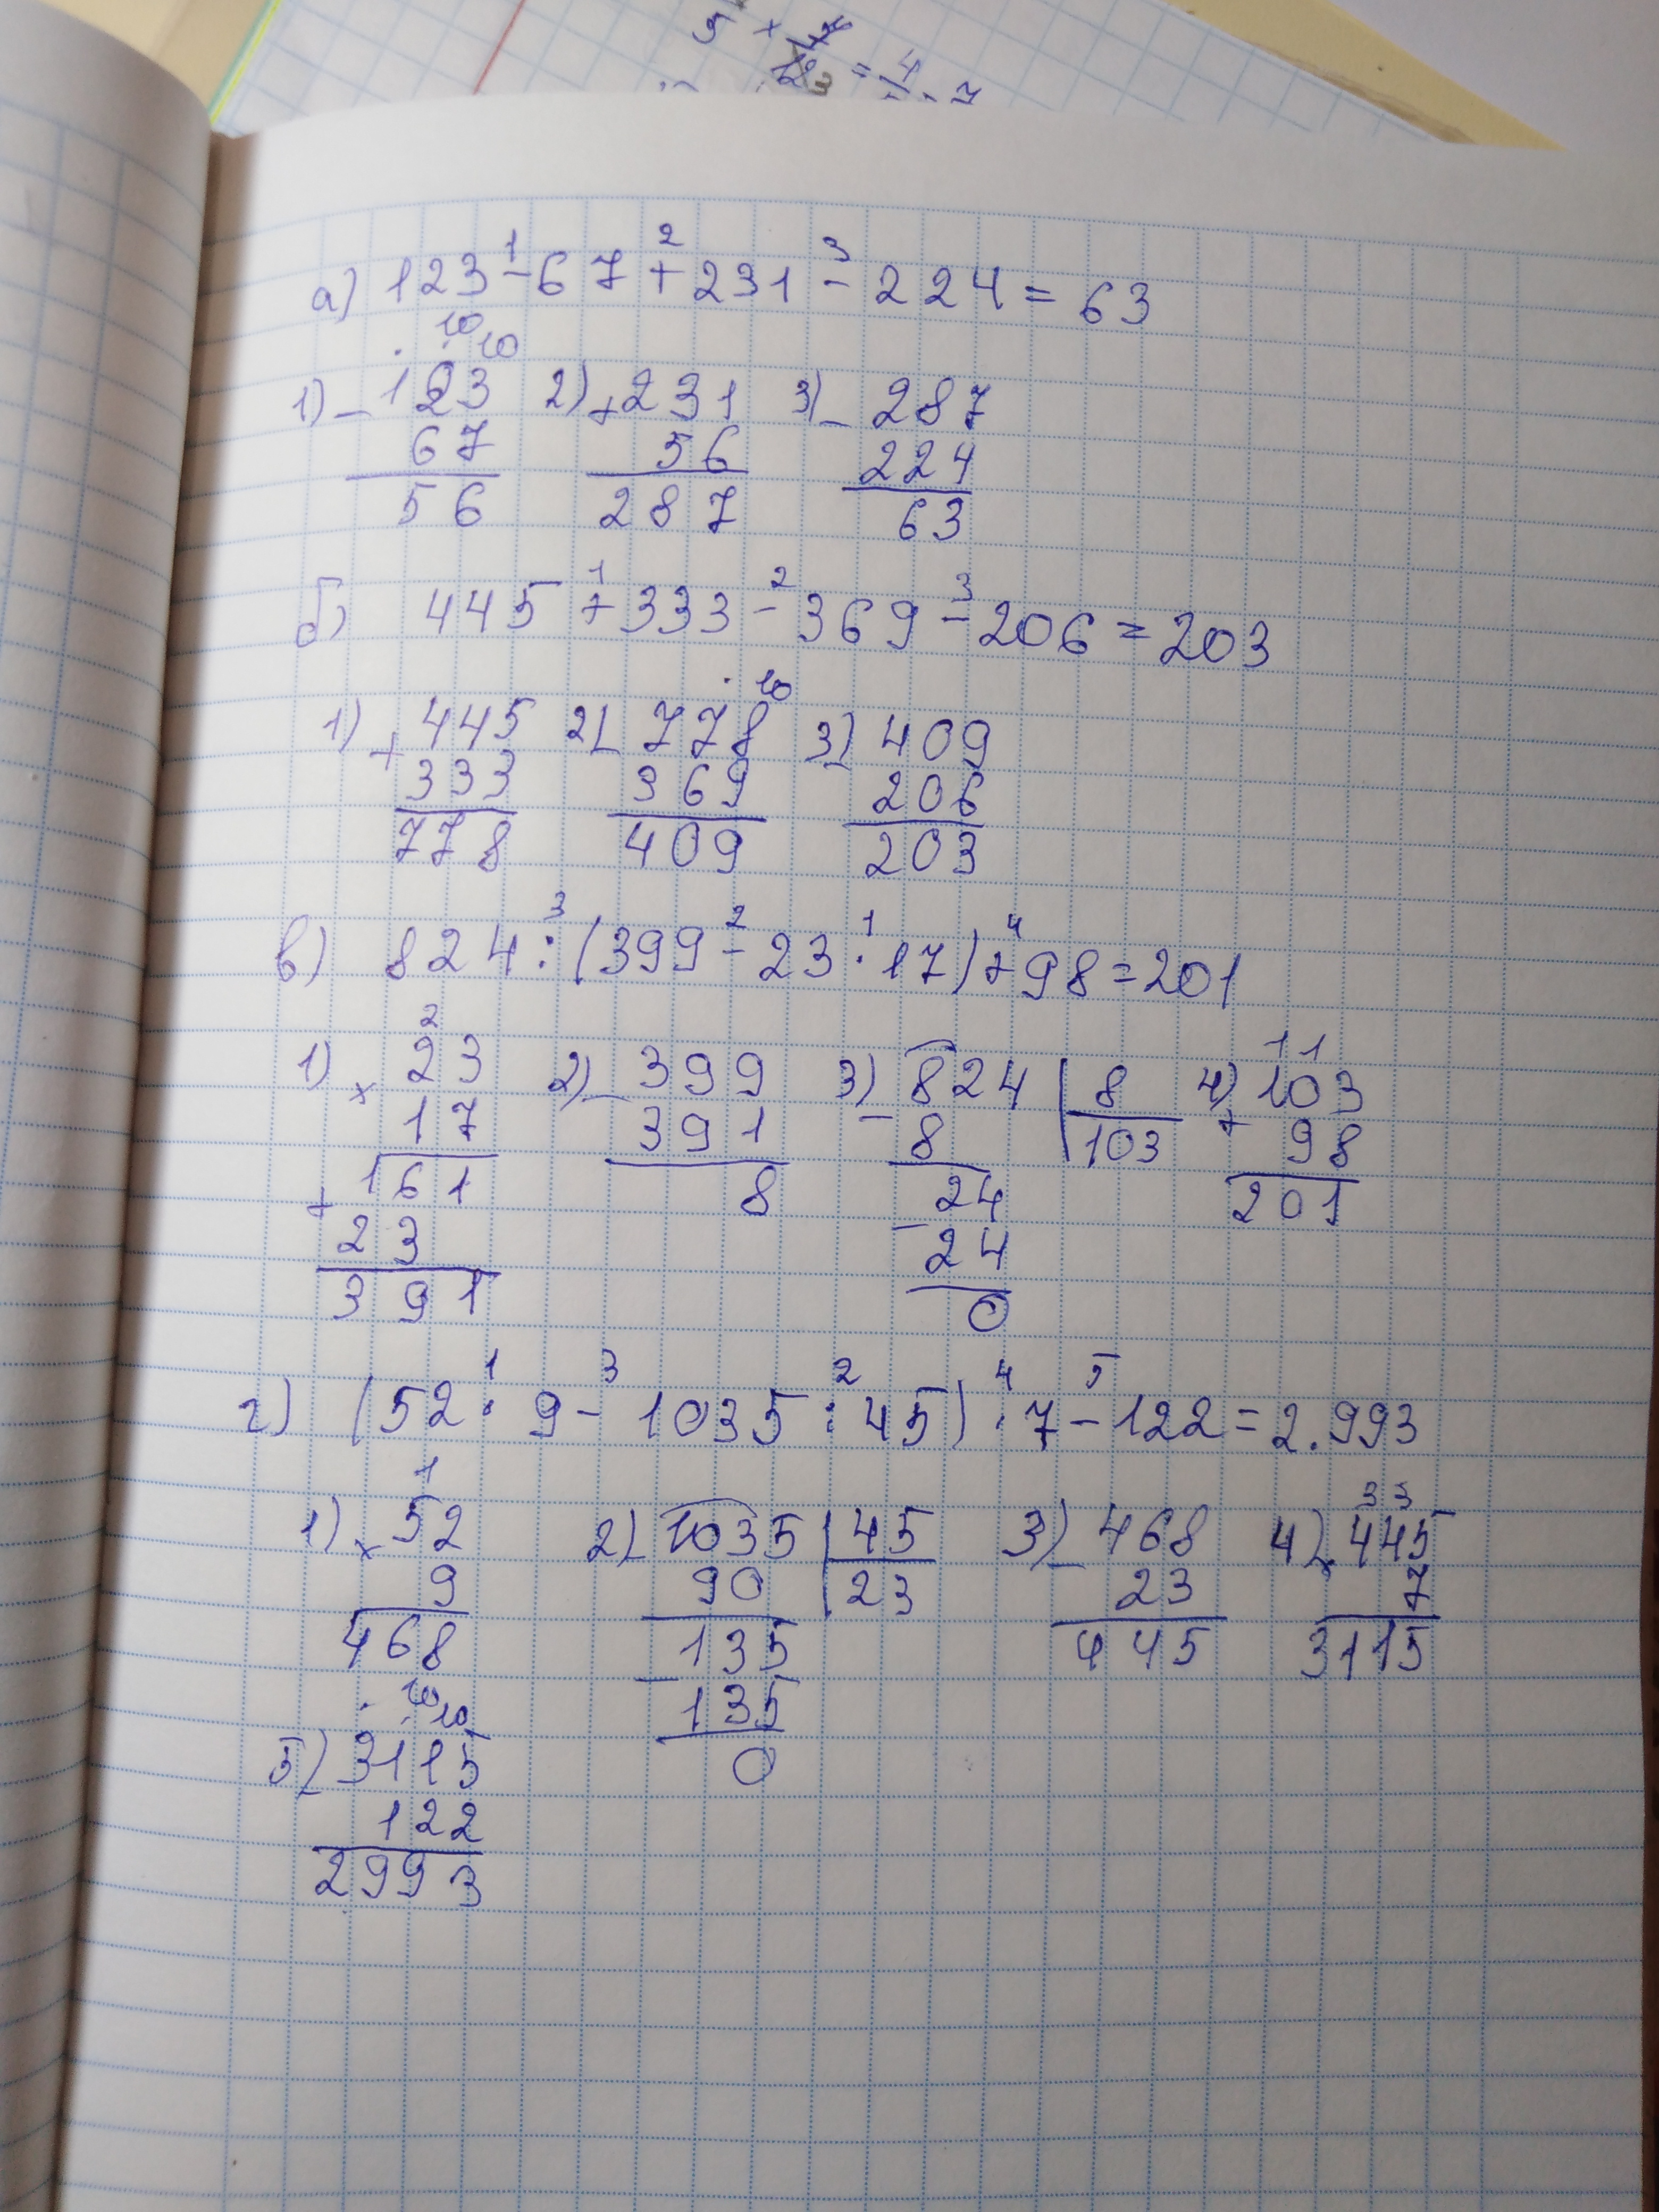 5 × 7
12 3 = 4 . 7
а) 123 - 67 + 231 - 224 = 63
1 2 3
10 10
1) - 123 2) + 231 3) - 287
67 56 224
56 287 63
1 2 3
б) 445 + 333 - 369 - 206 = 203
10
1) + 445 2) - 778 3) - 409
333 369 206
778 409 203
3 2 1 4
в) 824 : (399 - 23 · 17) + 98 = 201
2 1 1
1) × 23 2) - 399 3) - 824 | 8 4) + 103
17 391 8 103 98
+ 161 8 - 24 201
23 24
391 0
1 3 2 4 5
г) (52 · 9 - 1035 : 45) · 7 - 122 = 2.993
1 3 3
1) × 52 2) - 1035 | 45 3) - 468 4) × 445
9 90 23 23 7
468 - 135 445 3115
10 10 135
5) - 3115 0
122
2993